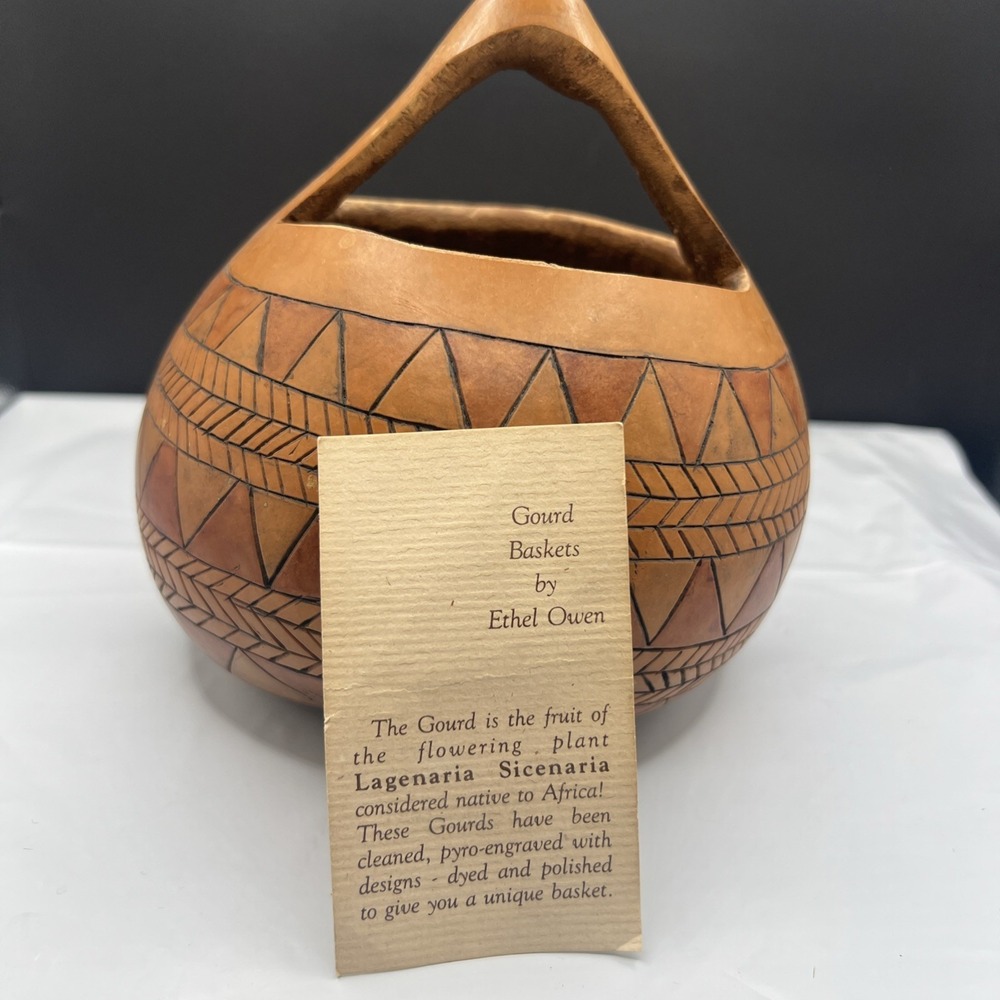 Gourd
Baskets
by
Ethel Owen
The Gourd is the fruit of
the flowering plant
Lagenaria Sicenaria
considered native to Africa!
These Gourds have been
cleaned, pyro-engraved with
designs - dyed and polished
to give you a unique basket.